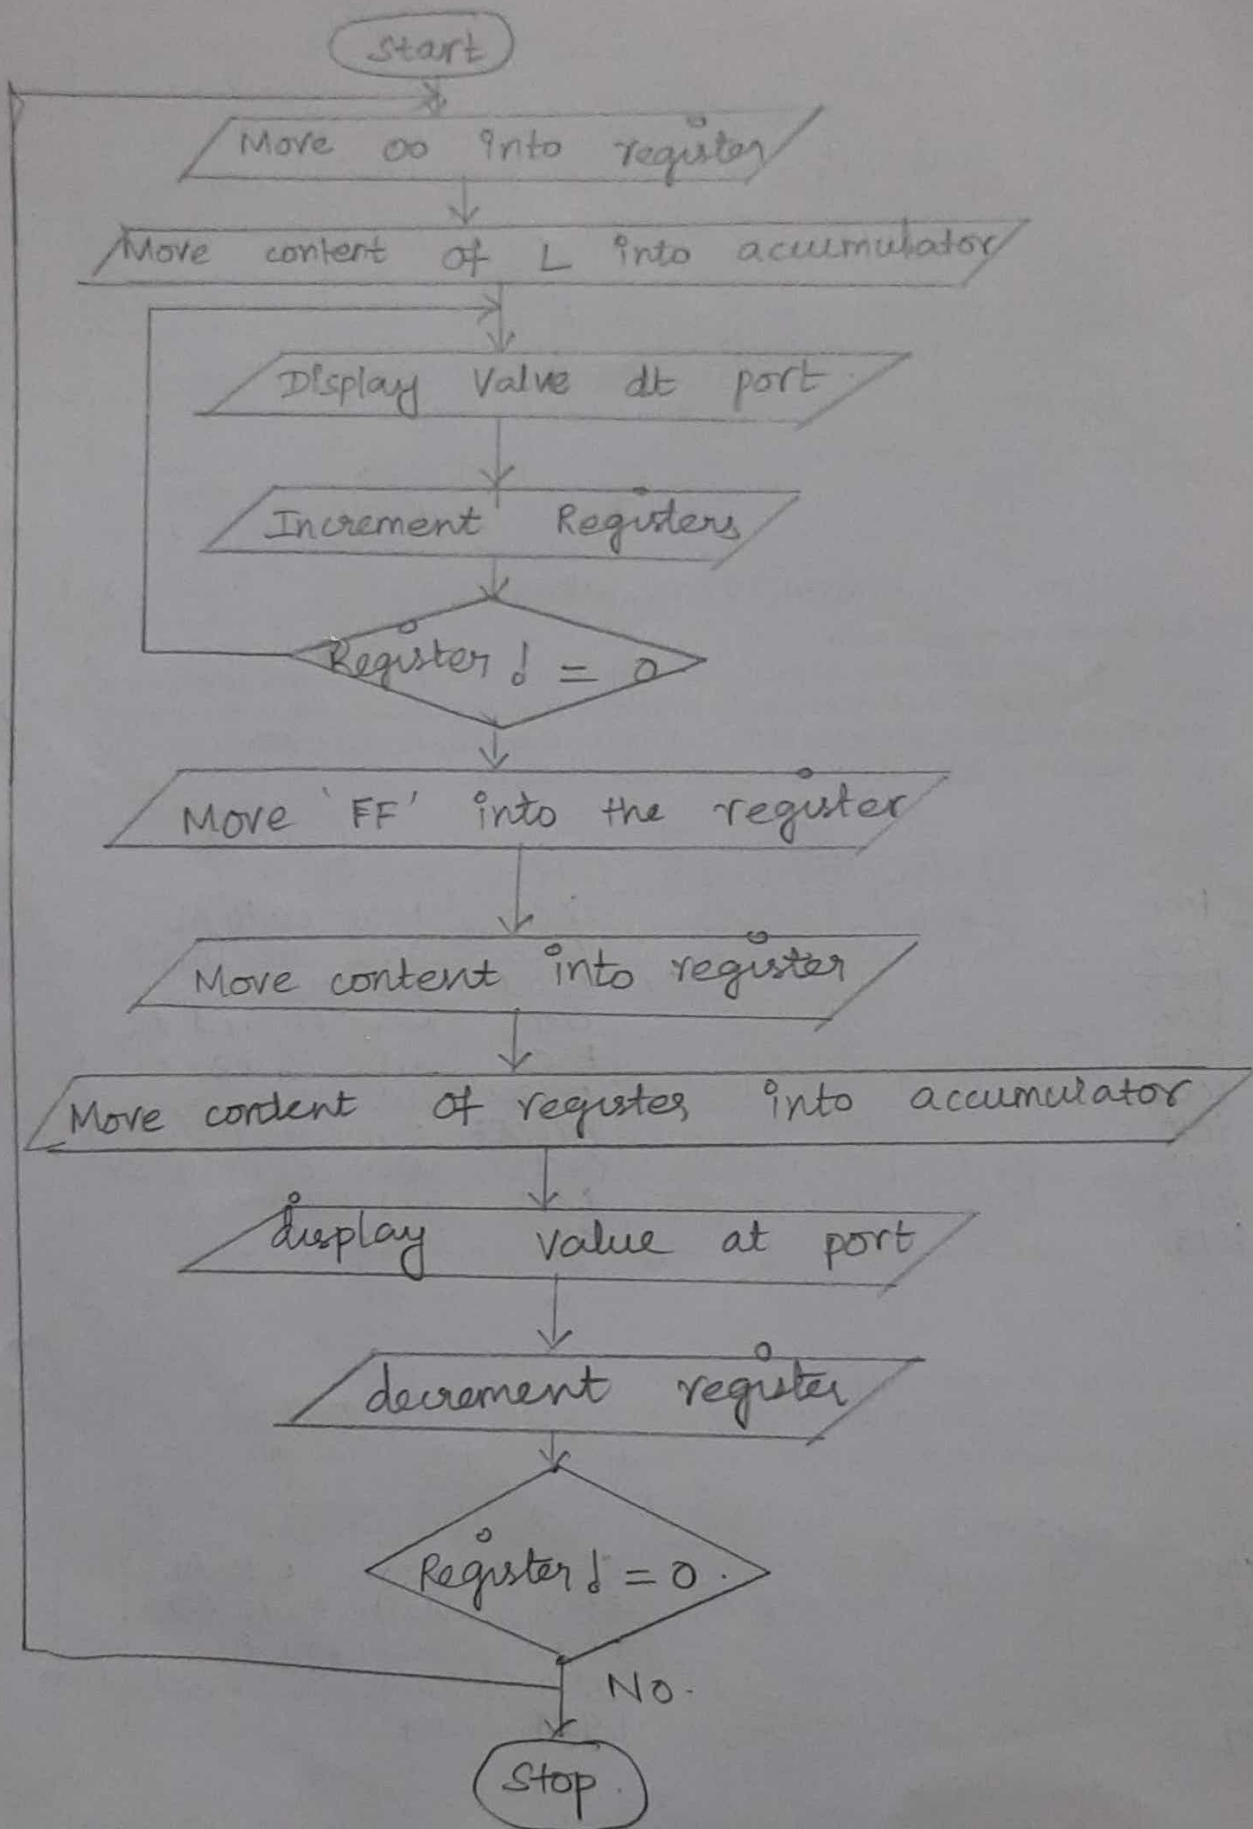 Start
Move 00 into register
Move content of L into accumulator
Display Value at port
Increment Registers
Register != 0
Move 'FF' into the register
Move content into register
Move content of register into accumulator
display value at port
decrement register
Register != 0.
No.
Stop.